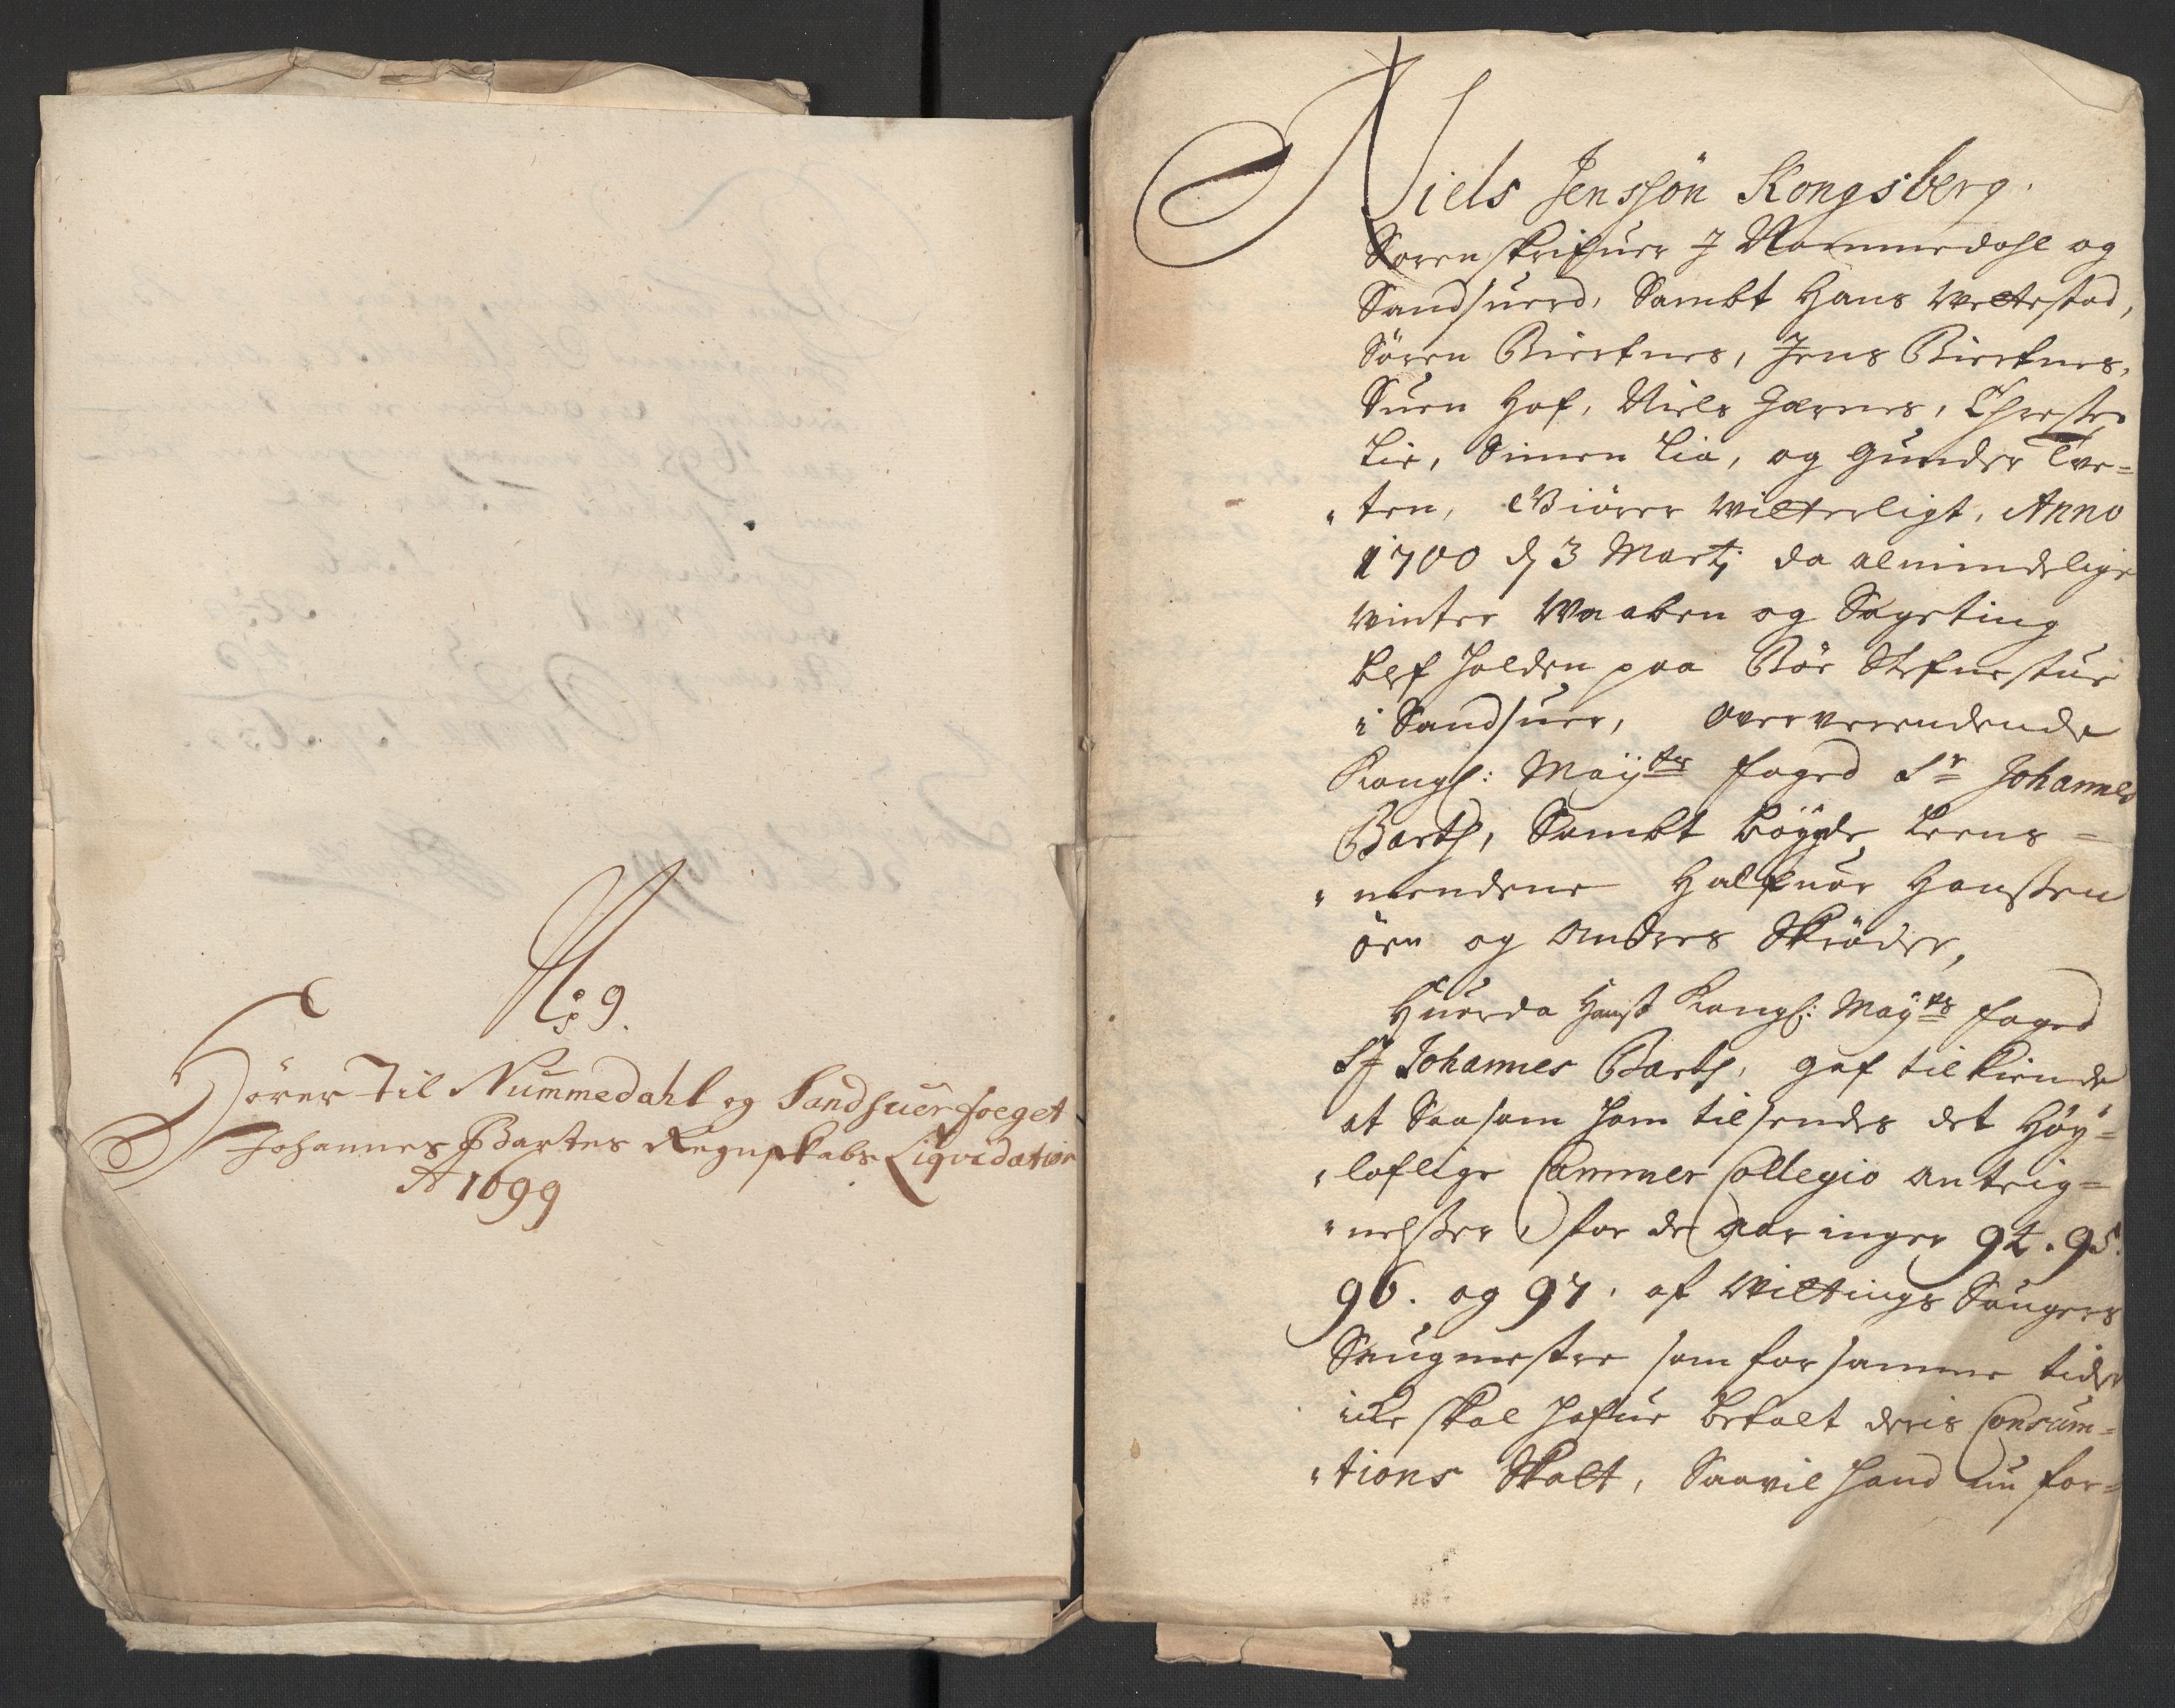 No 9.
Hörer Til Nummedahl og Sandsuer foeget
Johannes Bartes Regnskabs Liqvidation
Ao 1699
Niels Jensøn Kongsberg.
Sorenskrifuer J Nommedahl og
Sandsuerd, Sambt Hans Wettestad,
Sören Bierknes, Jens Bierknes,
Suen Hof, Niels Giernes, Christen
Lie, Simen Lia, og Gunder Tve=
ten, Giörer Witterligt, Anno
1700 d 3 Marti da almindelige
Winter Waaben og Sageting
blef holden paa Böe Stefnestue
i Sandsuer, oververendende
Kongl: Mayts foged Sr Johannes
Barth, Sambt bøygde Leens=
mendene Halfuor Hanssen
ørn og Andres Skrøder,
Huorda Hanst Kongl: Mayts foged
Sr Johannes Barth, gaf tilkiende
at Saasom ham tilsendes det Høy=
loflige Cammer Collegio anteig=
nelsser for de aaringer 94. 95.
96. og 97. af Wittings Saugers
Saugmestre som for samme tider
icke skal hafue betalt deris Consum=
tions Skatt, Saavil hand nu for=